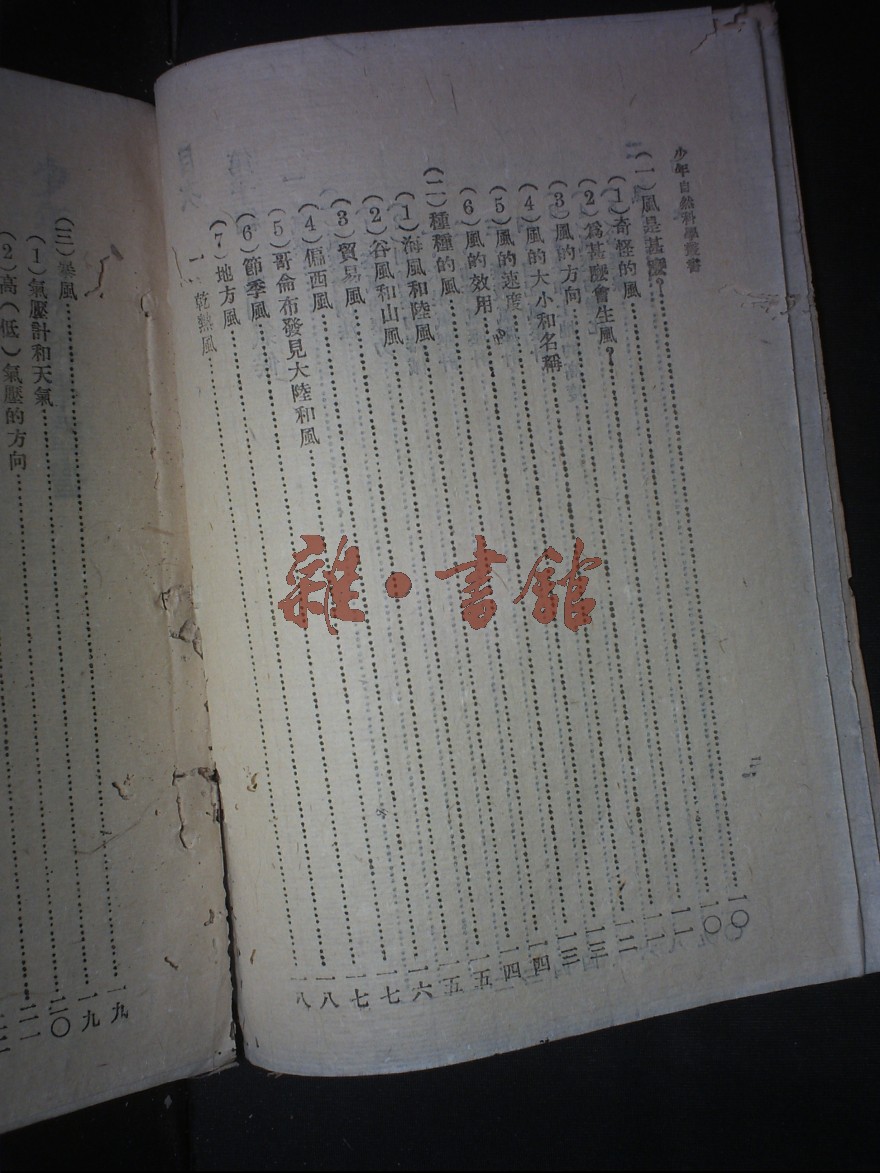 少年自然科學叢書 二
(一)風是甚麼?……一〇
(1)奇怪的風……一〇
(2)爲甚麼會生風?……一一
(3)風的方向……一一
(4)風的大小和名稱……一二
(5)風的速度……一三
(6)風的效用……一三
(二)種種的風……一四
(1)海風和陸風……一四
(2)谷風和山風……一五
(3)貿易風……一五
(4)偏西風……一六
(5)哥侖布發見大陸和風……一七
(6)節季風……一七
(7)地方風……一八
一、乾熱風……一八
(三)暴風……一九
(1)氣壓計和天氣……一九
(2)高(低)氣壓的方向……二〇
二一
二二
雜·書館